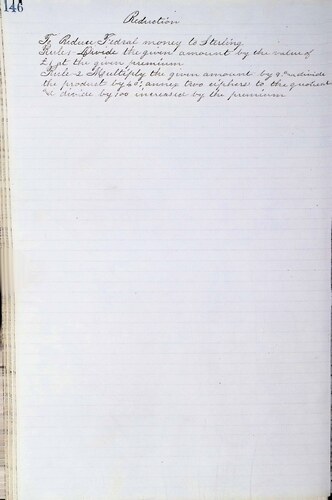 146
Reduction
To Reduce Fedral money to Sterling
Rule 1 Divide the given amount by the value of
£1 at the given premium
Rule 2 Multiply the given amount by 9, divide
the product by 40, annex two ciphers to the quotient
& divide by 100 increased by the premium